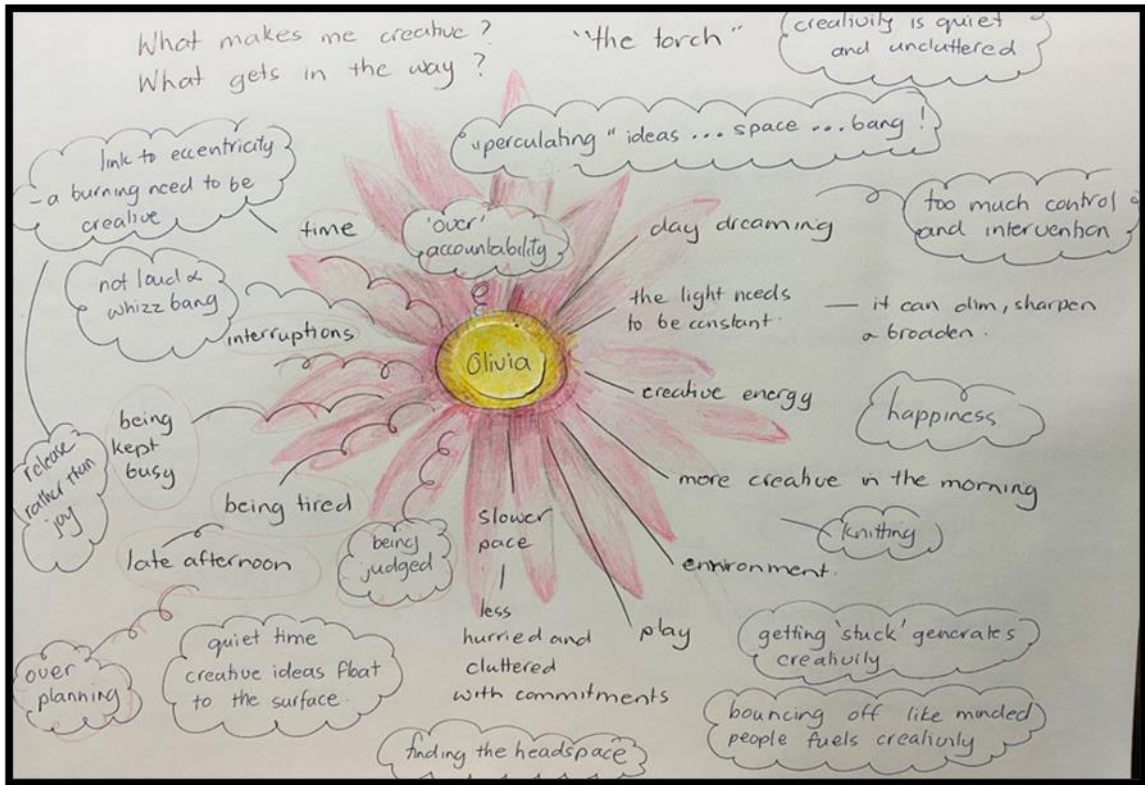 What makes me creative?
What gets in the way?
"the torch"
creativity is quiet
and uncluttered
"perculating" ideas ... space ... bang!
link to eccentricity
- a burning need to be
creative
time
'over'
accountability
day dreaming
too much control
and intervention
not loud &
whizz bang
interruptions
the light needs
to be constant.
— it can dim, sharpen
& broaden.
Olivia
creative energy
happiness
being
kept
busy
release
rather than
joy
being tired
more creative in the morning
knitting
late afternoon
being
judged
slower
pace
environment.
less
hurried and
cluttered
with commitments
play
getting 'stuck' generates
creativity
over
planning
quiet time
creative ideas float
to the surface.
bouncing off like minded
people fuels creativity
finding the headspace